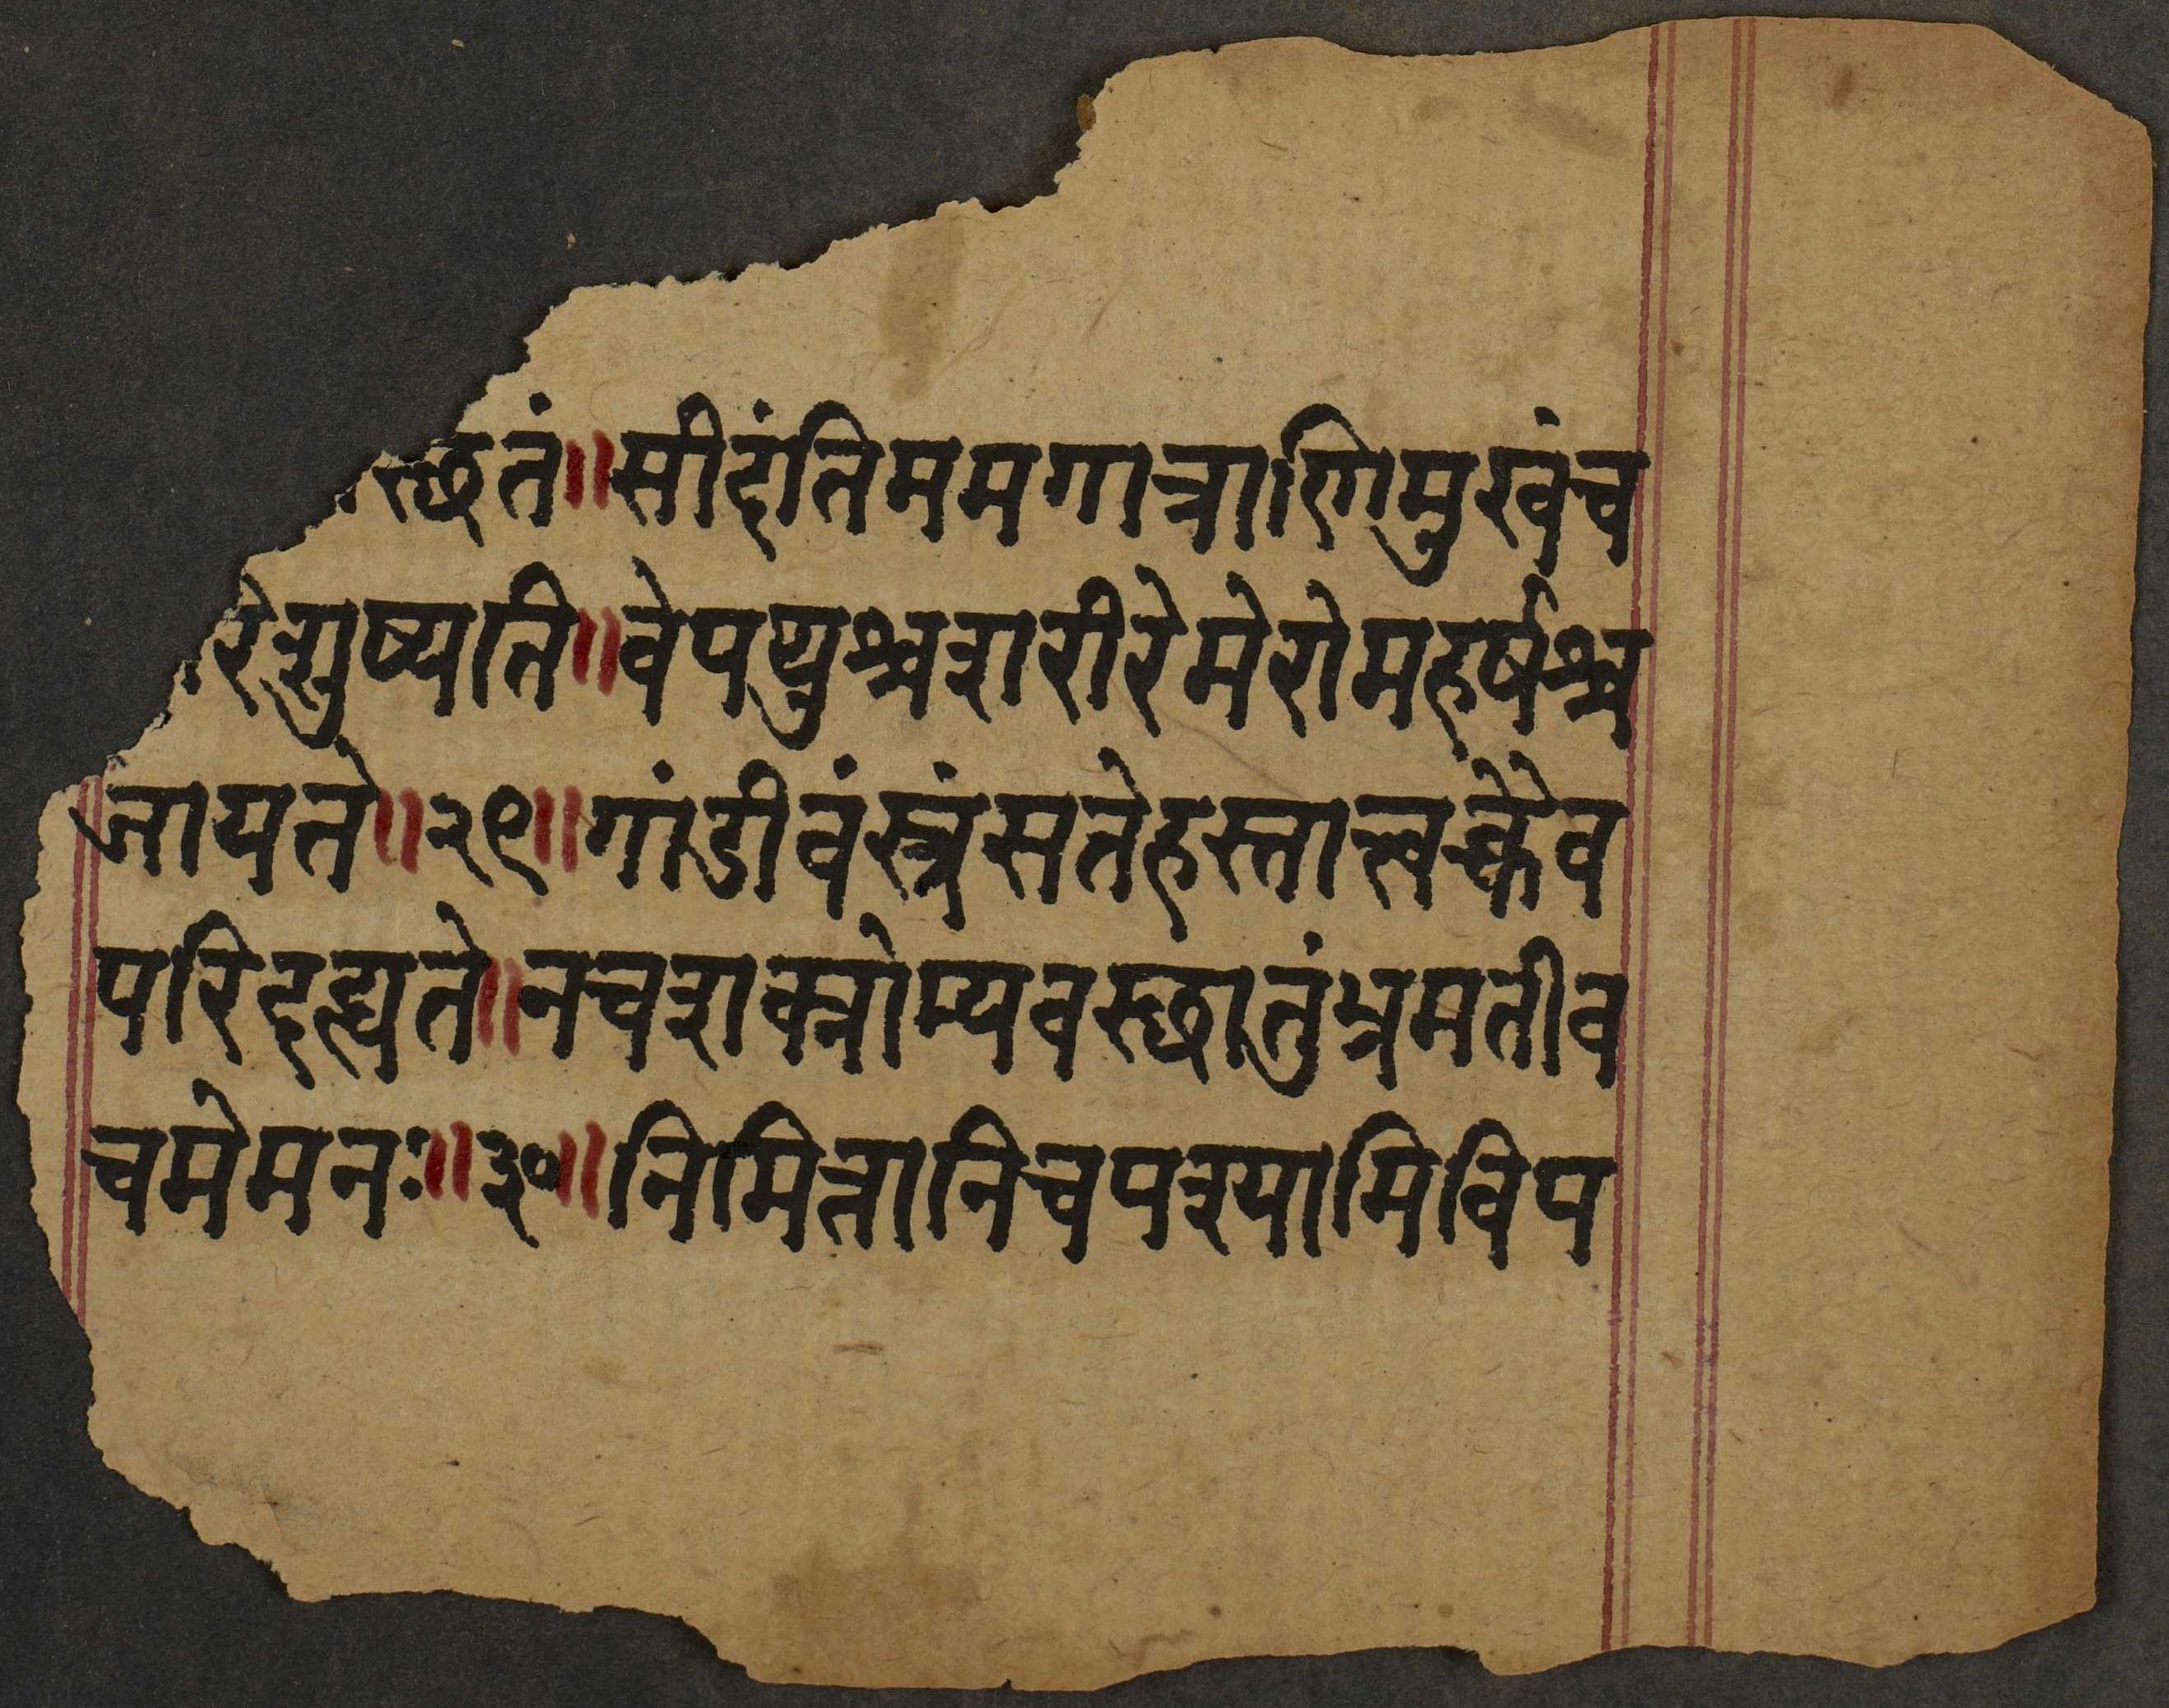 स्छितं॥सीदंतिममगात्राणिमुखंच
रिशुष्यति॥वेपथुश्चशरीरेमेरोमहर्षश्च
जायते॥२९॥गांडीवंस्त्रंसतेहस्तात्त्वक्चैव
परिदह्यते॥नचशक्नोम्यवस्छातुंभ्रमतीव
चमेमनः॥३०॥निमित्तानिचपश्यामिविप